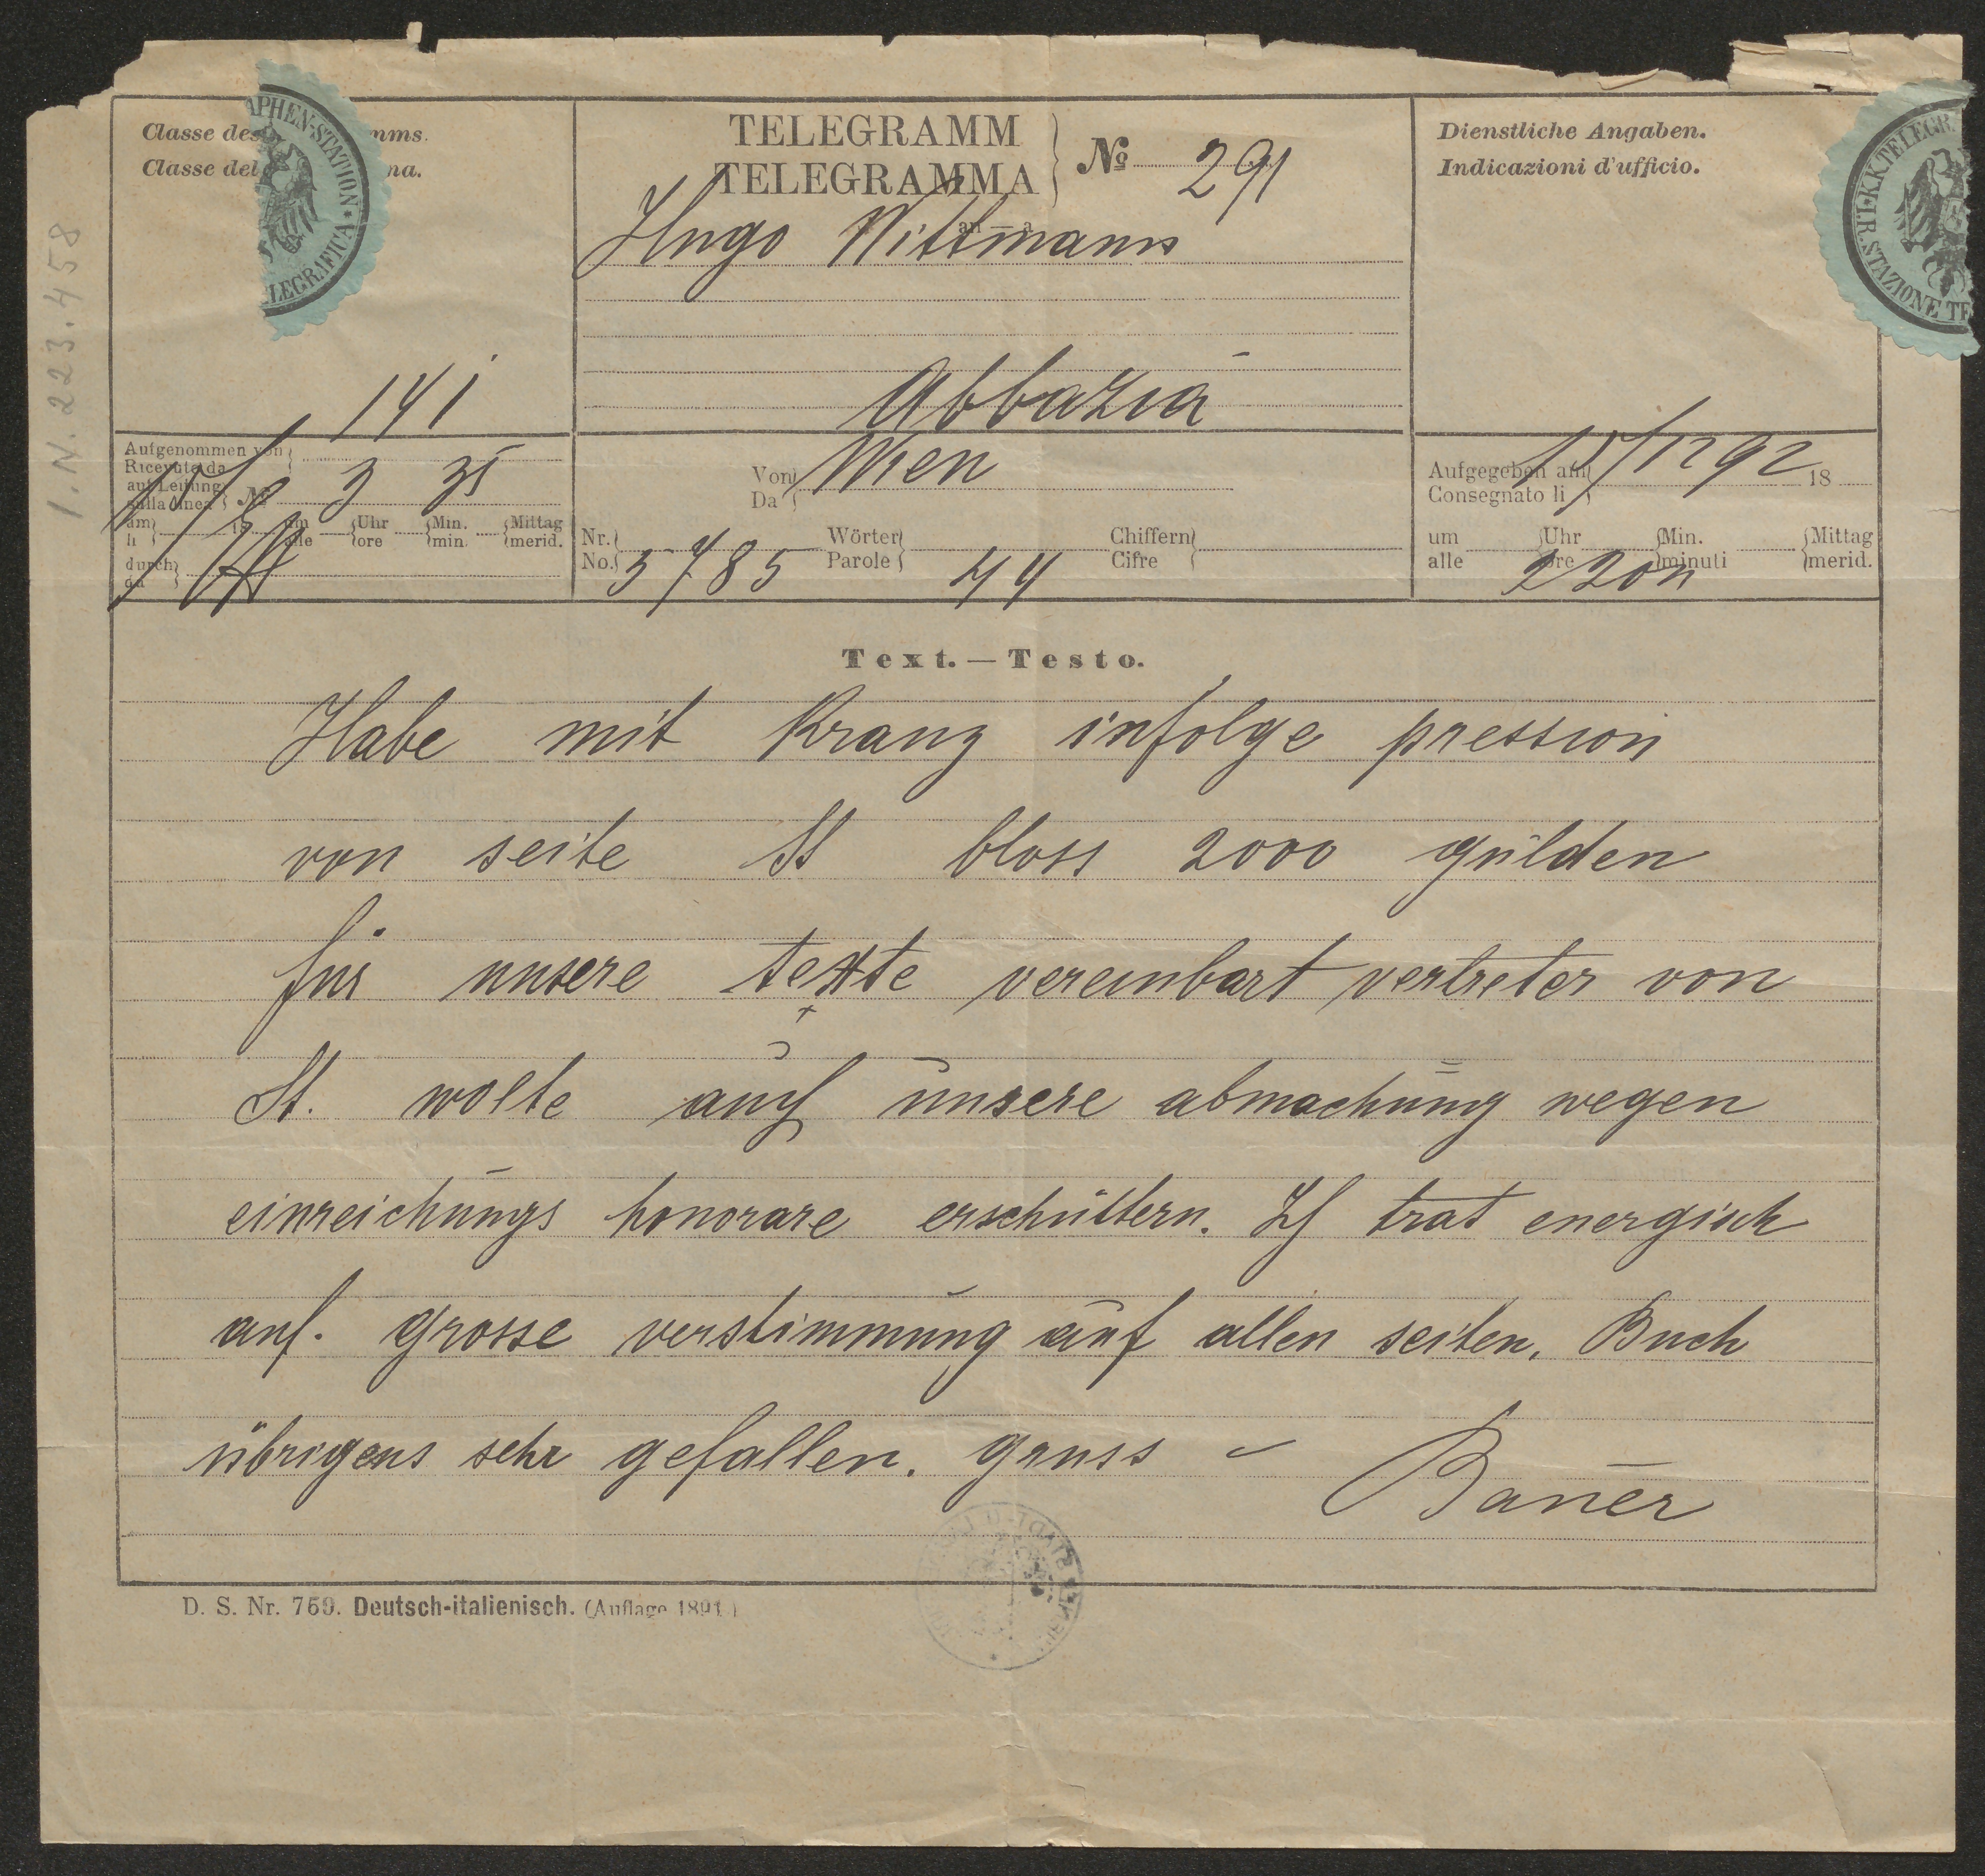 Classe des mms.
Classe del na.
APHEN-STATION * LEGRAFICA
TELEGRAMM
TELEGRAMMA
№ 291
an – a
Hugo Wittmann
Abbazia
Dienstliche Angaben.
Indicazioni d'ufficio.
K.K. TELEGR STAZIONE TE
I.N. 223.458
141
Aufgenommen von
Ricevuto da
auf Leitung
sulla linea № 3 35
am 18 um Uhr Min. Mittag
li alle ore min. merid.
durch
da
Von Wien
Da
Nr. Wörter Chiffern
No. 5785 Parole 44 Cifre
Aufgegeben am 15/12 92 18
Consegnato li
um Uhr Min. Mittag
alle ore minuti merid.
2 20n
Text. — Testo.
Habe mit Kranz infolge pression
von seite St bloss 2000 gulden
für unsere texte vereinbart vertreter von
St. wolte auch unsere abmachung wegen
einreichungs honorare erschüttern. Ich trat energisch
auf. grosse verstimmung auf allen seiten. Buch
übrigens sehr gefallen. gruss –
Bauer
D. S. Nr. 769. Deutsch-italienisch. (Auflage 1891.)